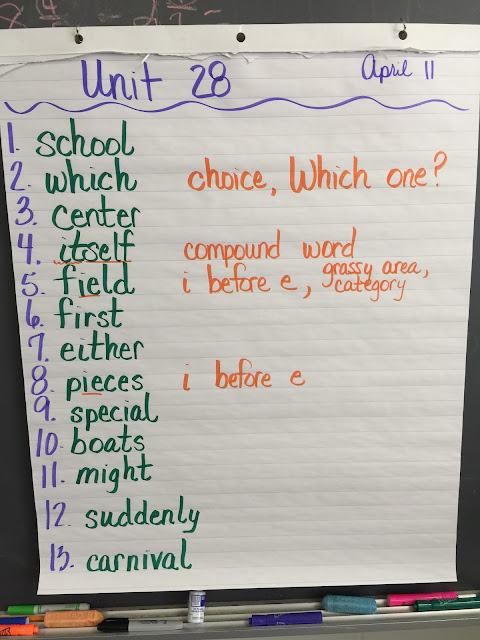 Unit 28 April 11
1. school
2. which choice, Which one?
3. center
4. itself compound word
5. field i before e, grassy area, category
6. first
7. either
8. pieces i before e
9. special
10. boats
11. might
12. suddenly
13. carnival